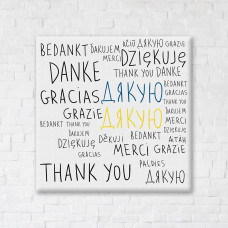 BEDANKT ĎAKUJEM AČIŪ ДЯКУЮ GRAZIE
DANKE MERCI DZIĘKUJĘ
THANK YOU DANKE
GRACIAS ДЯКУЮ
GRAZIE ДЯКУЮ
BEDANKT GRAZIE
THANK YOU
ĎAKUJEM
DZIĘKUJĘ
GRACIAS
DĚKUJI BEDANKT
MERCI GRAZIE
AITÄH
THANK YOU PALDIES
ДЯКУЮ